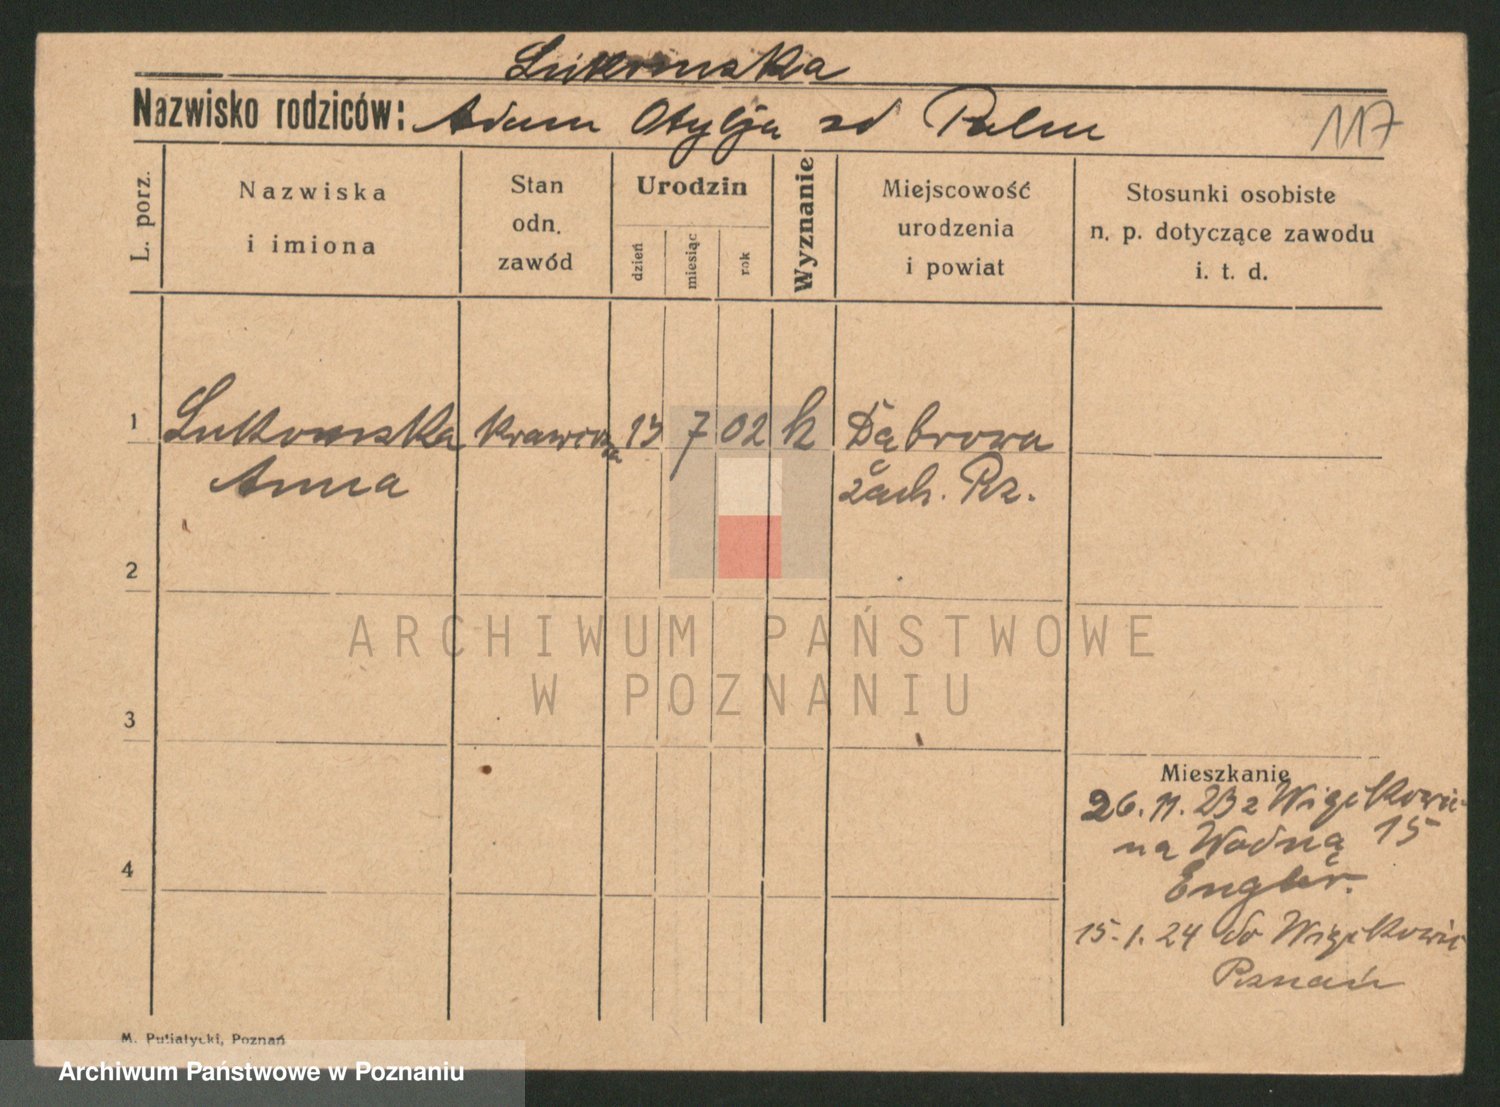 Lukomska
Nazwisko rodziców: Adam Otylja zd Palm
117
L. porz.
Nazwiska
i imiona
Stan
odn.
zawód
Urodzin
dzień
miesiąc
rok
Wyznanie
Miejscowość
urodzenia
i powiat
Stosunki osobiste
n. p. dotyczące zawodu
i. t. d.
1 Lukomska krawcowa 7 02 k Dąbrowa
Anna zach. Pz.
2
3
4
Mieszkanie
26.11.23 z
na Wodną 15
Engler.
15.1.24 do
Poznań
M. Putiatycki, Poznań
ARCHIWUM PAŃSTWOWE
W POZNANIU
Archiwum Państwowe w Poznaniu